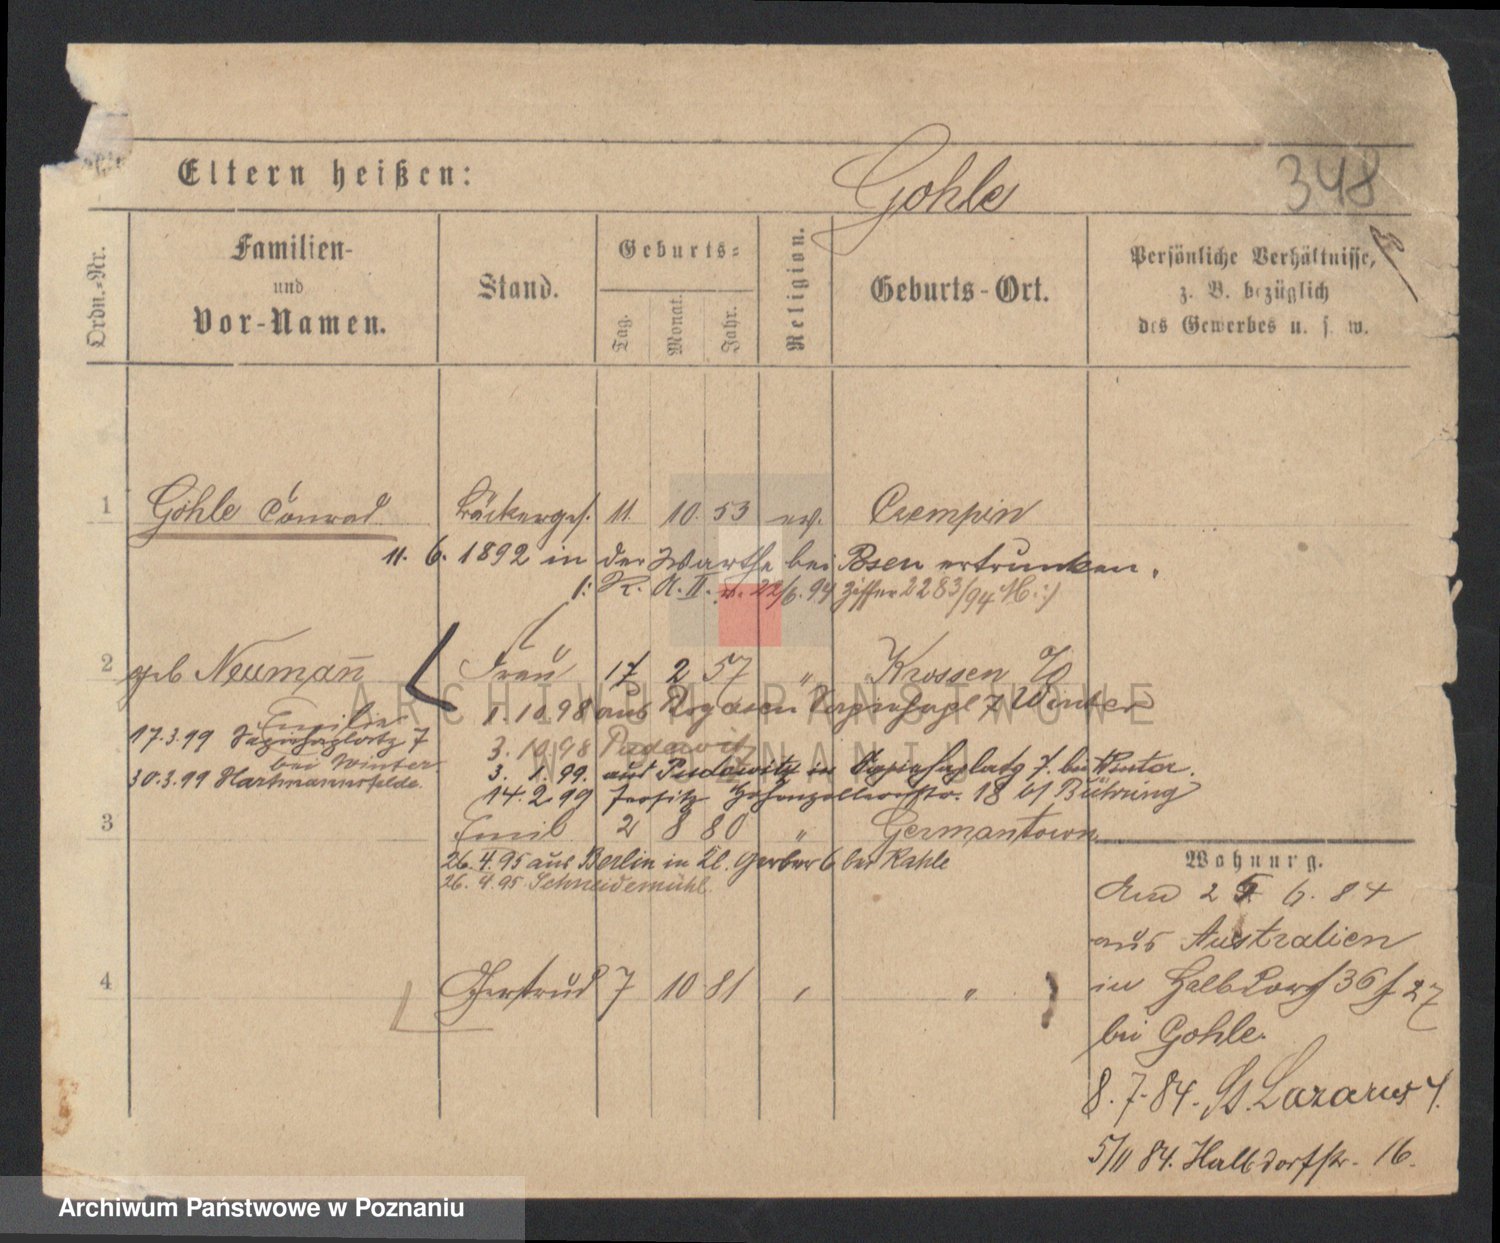 Eltern heißen:
Gohle
348
Ordn.-Nr.
Familien-
und
Vor-Namen.
Stand.
Geburts-
Tag.
Monat.
Jahr.
Religion.
Geburts-Ort.
Persönliche Verhältnisse,
z. B. bezüglich
des Gewerbes u. s. w.
1 Gohle Conrad Bäckerges. 11. 10. 53 ev. Czempin
11. 6. 1892 in der Warthe bei Posen ertrunken.
22/6. 94 Ziffer 2283/94
2 geb Neumann Frau 17 2 57 " Krossen %
Emilie
1. 10. 98 aus Rogasen 7 Winter
17.3.99 Sapiehaplatz 7
bei Winter
30.3.99 Hartmannsfelde.
3. 10. 98 Pudewitz
3. 1. 99. aus Pudewitz in Sapiehaplatz 7. bei Winter.
14. 2. 99 Jersitz Hohenzollernstr. 18 bei Bühring
3 Emil 2 8 80 " Germantown
26. 4. 95 aus Berlin in Kl. Gerber 6 bei Kahle
26. 4. 95 Schneidemühl.
4 Gertrud 7 10 81 " "
Wohnung.
6. 84
aus Australien
in Halbdorf 36 27
bei Gohle.
8. 7. 84. St. Lazarus
5/11 84. Halbdorfstr. 16.
ARCHIWUM PAŃSTWOWE
W POZNANIU
Archiwum Państwowe w Poznaniu